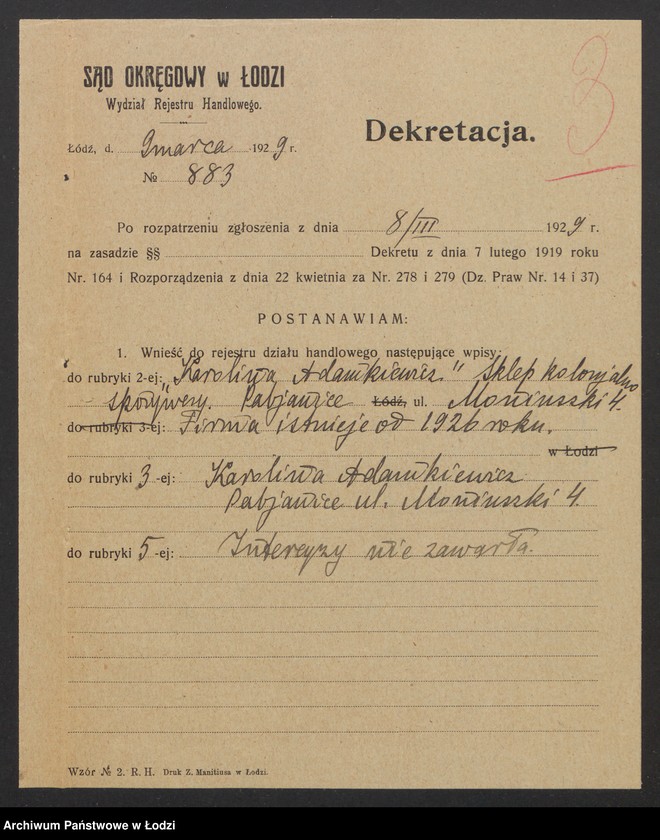 3
SĄD OKRĘGOWY w ŁODZI
Wydział Rejestru Handlowego.
Dekretacja.
Łódź, d. 9 marca 1929 r.
№ 883
Po rozpatrzeniu zgłoszenia z dnia 8/III 1929 r.
na zasadzie §§ Dekretu z dnia 7 lutego 1919 roku
Nr. 164 i Rozporządzenia z dnia 22 kwietnia za Nr. 278 i 279 (Dz. Praw Nr. 14 i 37)
POSTANAWIAM:
1. Wnieść do rejestru działu handlowego następujące wpisy:
do rubryki 2-ej: "Karolina Adamkiewicz" Sklep kolonjalno
spożywczy. Pabjanice Łódź, ul. Moniuszki 4.
do rubryki 3-ej: Firma istnieje od 1926 roku.
w Łodzi
do rubryki 3-ej: Karolina Adamkiewicz
Pabjanice ul. Moniuszki 4.
do rubryki 5-ej: Intercyzy nie zawarła.
Wzór № 2. R. H. Druk Z. Manitiusa w Łodzi.
Archiwum Państwowe w Łodzi